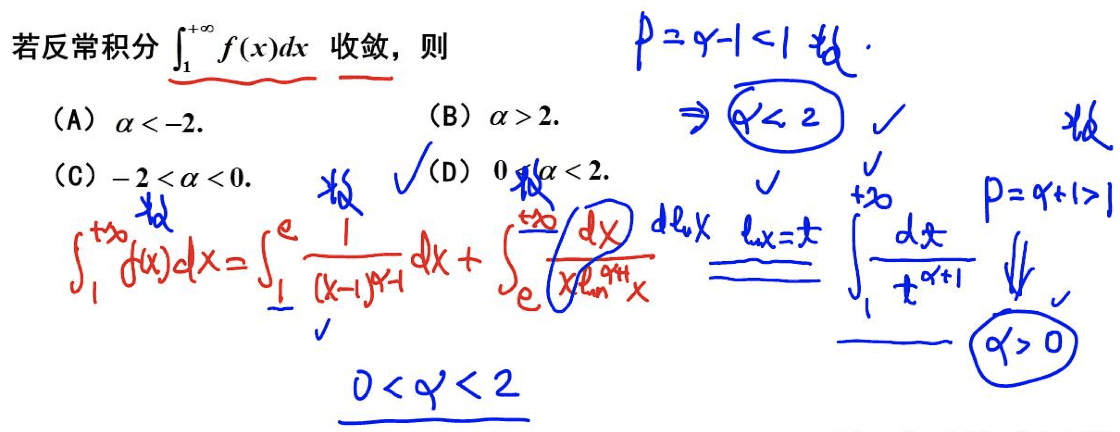 若反常积分 ∫₁^{+∞} f(x)dx 收敛，则
P = α-1 < 1 收敛.
(A) α < -2.
(B) α > 2.
⇒ α < 2 ✓
收敛
(C) -2 < α < 0.
✓ (D) 0 < α < 2.
P = α+1 > 1
收敛 收敛 收敛
∫₁^{+∞} f(x)dx = ∫₁^e 1/(x-1)^{α-1} dx + ∫_e^{+∞} dx/(x ln^{α+1} x) d ln x ln x = t ∫₁^{+∞} dt/t^{α+1}
⇓
α > 0
0 < α < 2